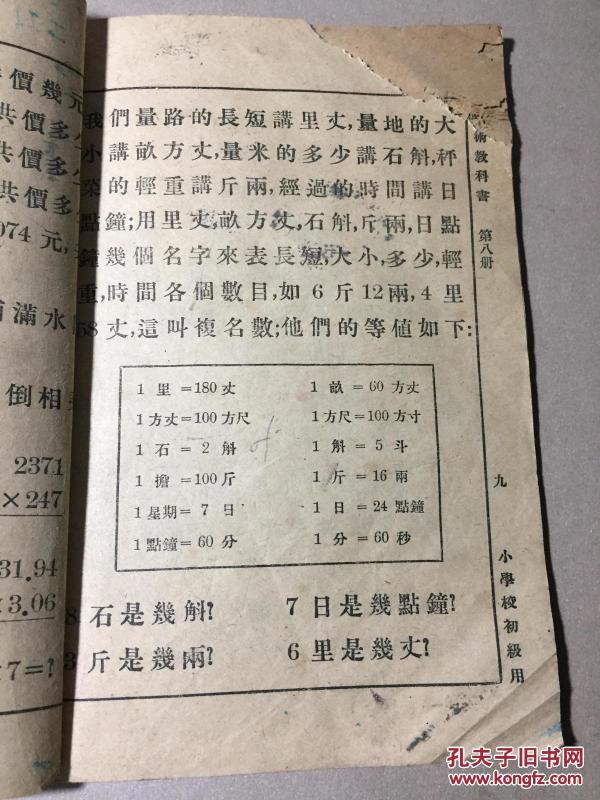 價幾元
共價多
共價多
074元,
滿水
倒相
2371
×247
31.94
×3.06
7=?
我們量路的長短講里丈,量地的大
小講畝方丈,量米的多少講石斛,秤
的輕重講斤兩,經過的時間講日
點鐘;用里丈,畝方丈,石斛,斤兩,日點
鐘幾個名字來表長短,大小,多少,輕
重,時間各個數目,如6斤12兩,4里
58丈,這叫複名數;他們的等値如下:
1里=180丈 1畝=60方丈
1方丈=100方尺 1方尺=100方寸
1石=2斛 1斛=5斗
1擔=100斤 1斤=16兩
1星期=7日 1日=24點鐘
1點鐘=60分 1分=60秒
8石是幾斛? 7日是幾點鐘?
3斤是幾兩? 6里是幾丈?
術教科書 第八册
九
小學校初級用
孔夫子旧书网
www.kongfz.com